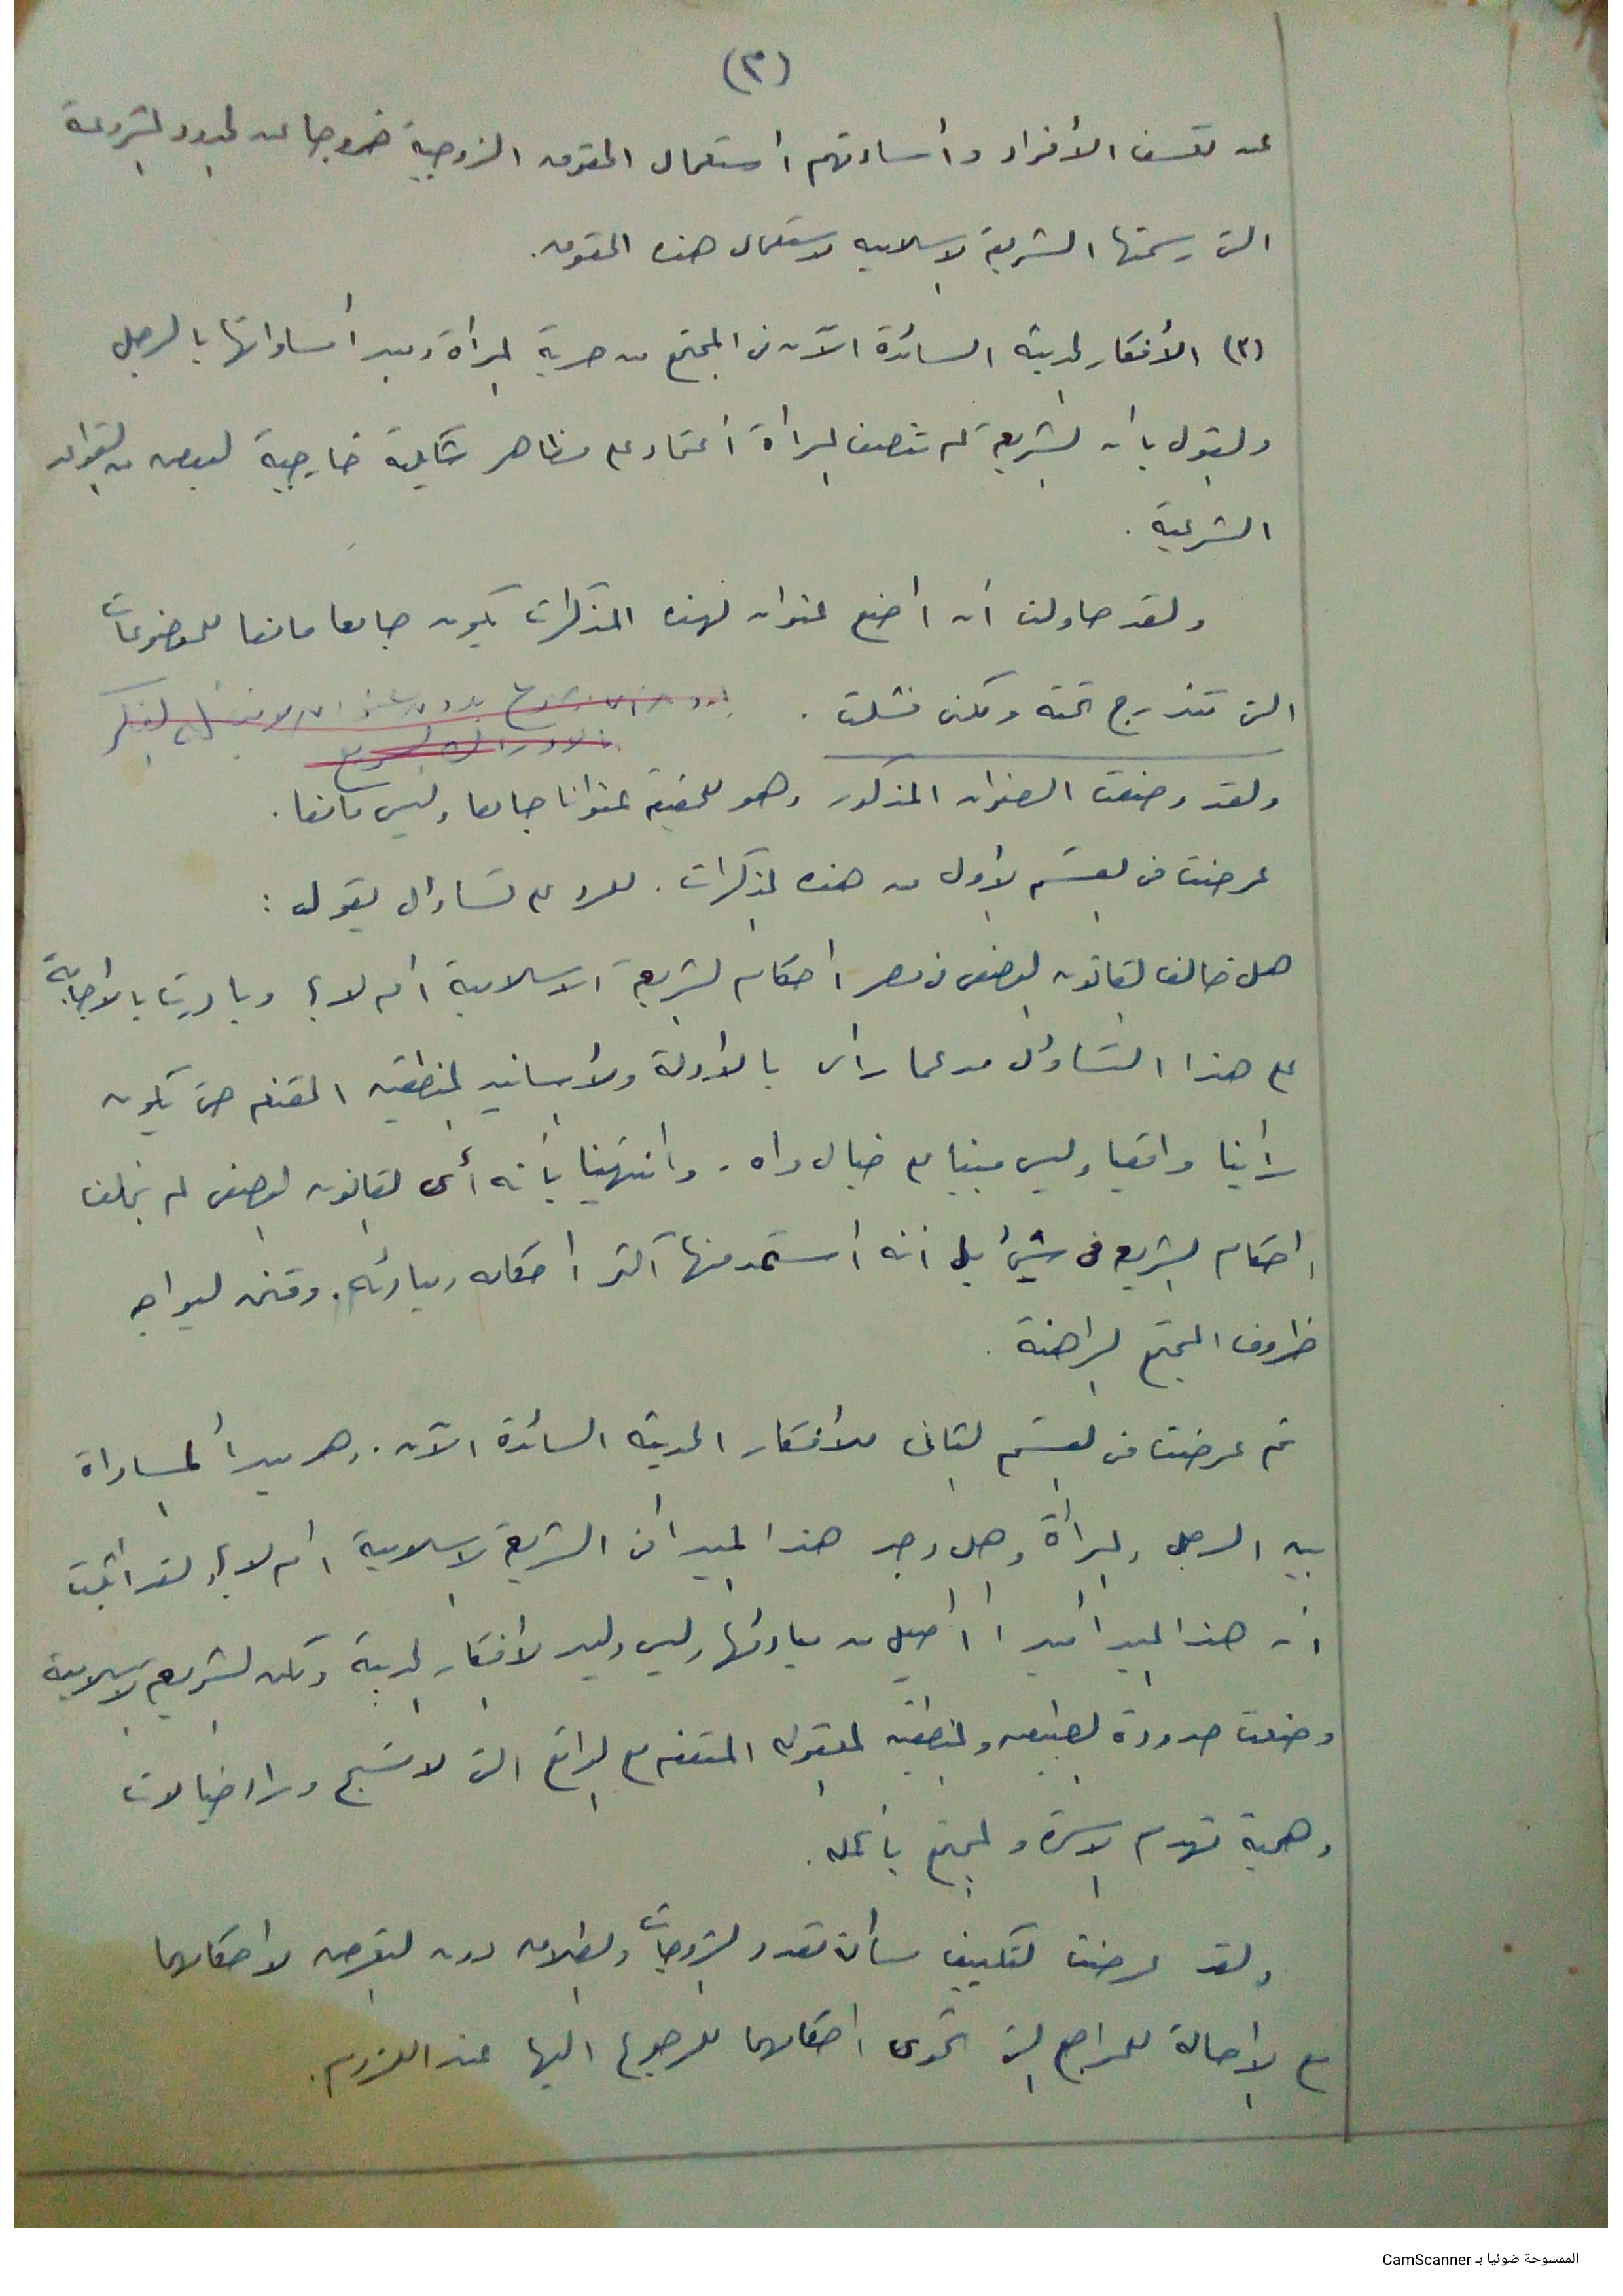 (٣)
عن تعسف الأفراد وأساءتهم استعمال الحقوق الزوجية خروجا عن الحدود المشروعة
التى رسمتها الشريعة الاسلاميه لاستعمال هذه الحقوق.
(٣) الأفكار الحديثه السائدة الآن فى المجتمع من حرية المرأة ومبدأ مساواتها بالرجل
والقول بأن الشريعة لم تنصف المرأة أعتماد على مظاهر شكلية خارجية لبعض من القواعد
الشرعية .
ولقد حاولت أن أضع عنوان لهذه المذكرات يكون جامعا مانعا للموضوعات
التى تندرج تحته ولكنى فشلت .
ولقد وضعت العنوان المذكور وهو للحقيقة عنوانا جامعا وليس مانعا .
عرضت فى القسم الأول من هذه المذكرات . للرد على تساؤل يقول :
هل خالف القانون الوضعى فى مصر احكام الشريعة الاسلامية أم لا ؟ وبادرت بالاجابة
على هذا التساؤل مدعما رأى بالادلة والأسانيد المنطقيه المقنعه حتى يكون
رأينا واقعيا وليس مبنيا على خيال واه . وانتهينا بأنه أى القانون الوضعى لم يخالف
احكام الشريعة فى شئ بل انه استمد منها أكثر أحكامه ومبادئه . وقنن ليواجه
ظروف المجتمع الراهنة .
ثم عرضت فى القسم الثانى للأفكار الحديثه السائدة الآن . وهو مبدأ المساواة
بين الرجل والمرأة وهل وجد هذا المبدأ فى الشريعة الاسلامية أم لا ؟ ولقد اثبت
أن هذا المبدأ مبدأ أصيل من مبادئها وليس وليد الأفكار الحديثة ولكن الشريعة الاسلامية
وضعت حدودة الطبيعيه والمنطقيه المعقوله المتفقه مع الواقع التى لا تسبح وراء خيالات
وهمية تهدم الاسرة والمجتمع بأكمله .
ولقد عرضت لتكييف مسألة تعدد الزوجات والطلاق دون التعرض لاحكامهما
مع الاحالة للمراجع التى تحوى احكامهما للرجوع اليها عند اللزوم .
الممسوحة ضوئيا بـ CamScanner